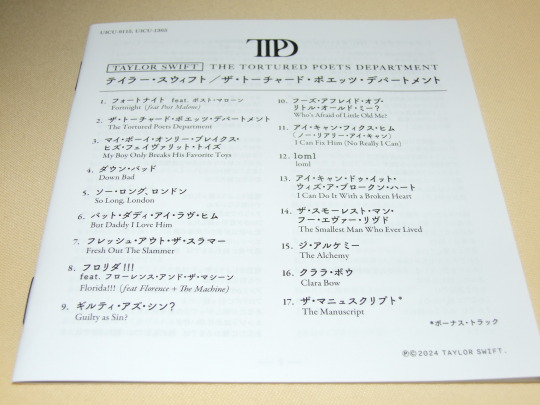 TTPD
TAYLOR SWIFT THE TORTURED POETS DEPARTMENT
テイラー・スウィフト／ザ・トーチャード・ポエッツ・デパートメント
1. フォートナイト feat. ポスト・マローン
Fortnight (feat Post Malone)
2. ザ・トーチャード・ポエッツ・デパートメント
The Tortured Poets Department
3. マイ・ボーイ・オンリー・ブレイクス・
ヒズ・フェイヴァリット・トイズ
My Boy Only Breaks His Favorite Toys
4. ダウン・バッド
Down Bad
5. ソー・ロング、ロンドン
So Long, London
6. バット・ダディ・アイ・ラヴ・ヒム
But Daddy I Love Him
7. フレッシュ・アウト・ザ・スラマー
Fresh Out The Slammer
8. フロリダ!!!
feat. フローレンス・アンド・ザ・マシーン
Florida!!! (feat Florence + The Machine)
9. ギルティ・アズ・シン？
Guilty as Sin?
10. フーズ・アフレイド・オブ・
リトル・オールド・ミー？
Who's Afraid of Little Old Me?
11. アイ・キャン・フィクス・ヒム
（ノー・リアリー・アイ・キャン）
I Can Fix Him (No Really I Can)
12. loml
loml
13. アイ・キャン・ドゥ・イット・
ウィズ・ア・ブロークン・ハート
I Can Do It With a Broken Heart
14. ザ・スモーレスト・マン・
フー・エヴァー・リヴド
The Smallest Man Who Ever Lived
15. ジ・アルケミー
The Alchemy
16. クララ・ボウ
Clara Bow
17. ザ・マニュスクリプト*
The Manuscript
*ボーナス・トラック
℗©2024 TAYLOR SWIFT.